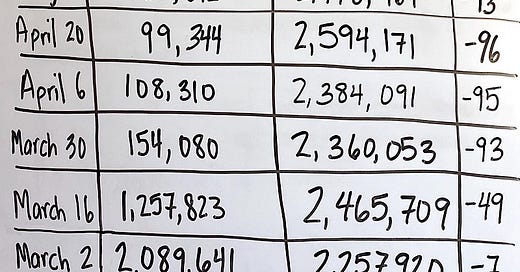 April 20 99,344 2,594,171 -96
April 6 108,310 2,384,091 -95
March 30 154,080 2,360,053 -93
March 16 1,257,823 2,465,709 -49
March 2 2,089,641 2,257,920 -7